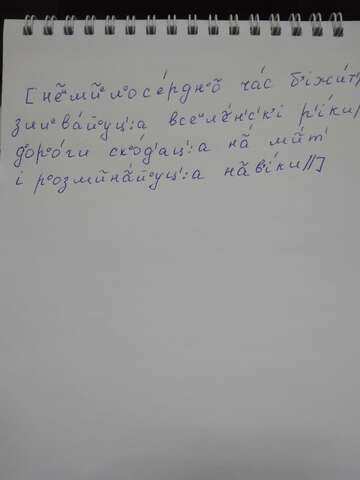 [не̃ми̃ᵉл°осе́рдно̃ ча́с б'іжи́т'/
зли ва́йуц':а все ле́н'с'к'і р'і́ки/
доро́ги схо́д'ац':а на́ ми́т'
і розмина́йуц':а наӟв'і́ки//]